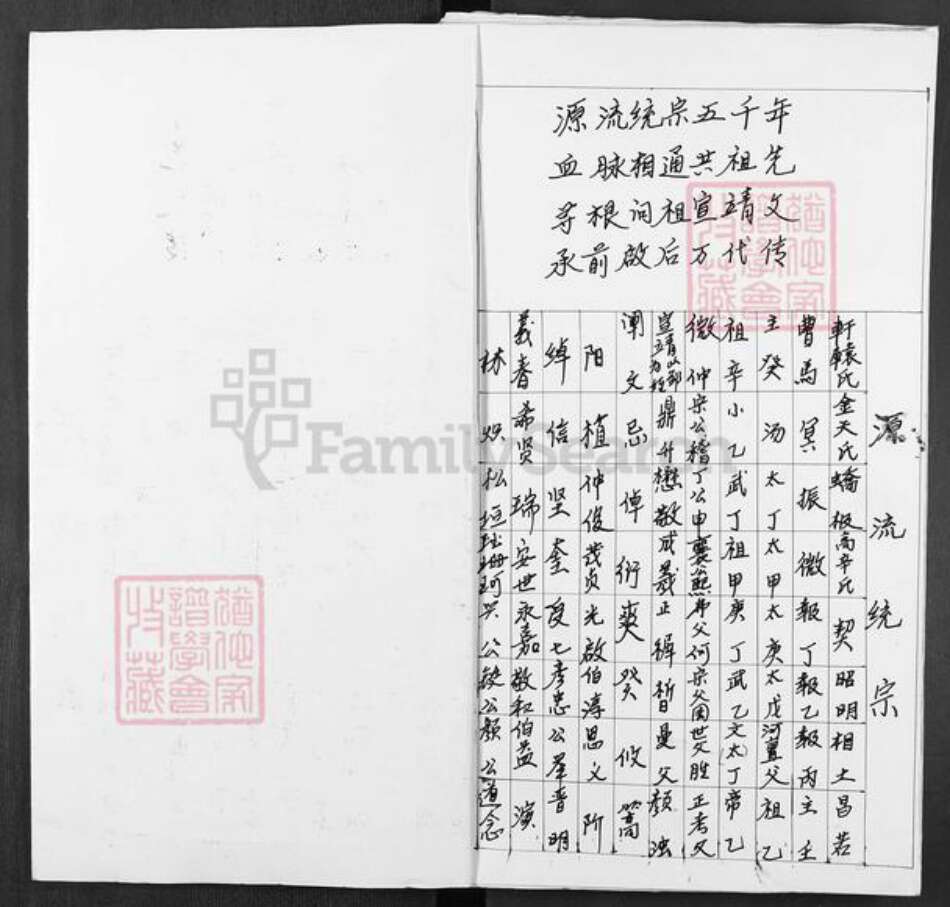 源流统宗五千年
血脉相通共祖先
寻根问祖宣靖文
承前啟后万代传
源流统宗
軒轅氏 金天氏 蟜极 高辛氏 契 昭明 相土 昌若
曹馬 冥 振 微 報丁 報乙 報丙 主壬
主癸 汤 太丁 太甲 太庚 太戊 河亶父 祖乙
祖辛 小乙 武丁 祖甲 庚丁 武乙 文(太)丁 帝乙
微仲 宋公稽 丁公申 襄公熙 弗父何 宋父周 世父胜 正考父
鼎升 懋敬 成 正 晳 曼父
阐文 忌 倬 衍 爽 攸 篙
阳 植 仲俊 茂贞 光啟 伯淳 思义 阶
绰 信 坚 奎 度七 彦忠 公 晋明
義春 希贤 瑞 安世 永嘉 敬和 伯益 演
林 炽 松垣 珊珂 公 公 颜公 道念
猶他家譜學會收藏
猶他家譜學會收藏
FamilySearch